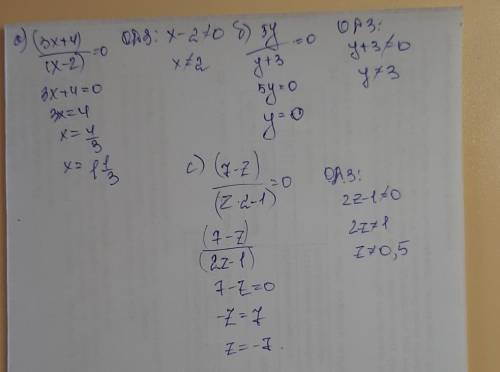 а) (3x+4)/(x-2) =0 ОДЗ: x-2≠0
x≠2
3x+4=0
3x=4
x=4/3
x=1 1/3
б) 5y/y+3 =0 ОДЗ:
y+3≠0
5y=0 y≠3
y=0
с) (7-z)/(z·2-1) =0 ОДЗ:
2z-1≠0
(7-z)/(2z-1) 2z≠1
z≠0,5
7-z=0
-z=7
z=-7.